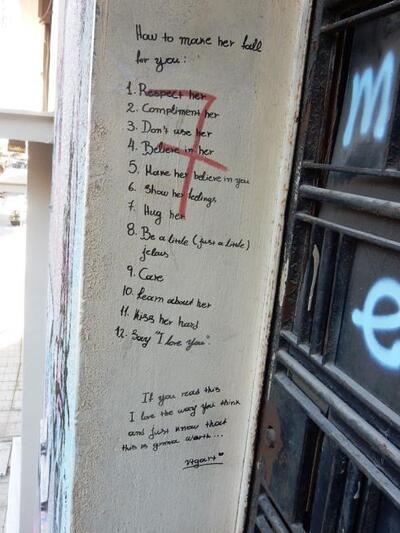 How to make her fall
for you:
1. Respect her
2. Compliment her
3. Don't use her
4. Believe in her
5. Make her believe in you
6. Show her feelings
7. Hug her
8. Be a little (just a little)
jelaus
9. Care
10. Learn about her
11. Kiss her hard
12. Say "I love you".
If you read this
I love the way you think
and just know that
this is gonna worth...
7
m
e